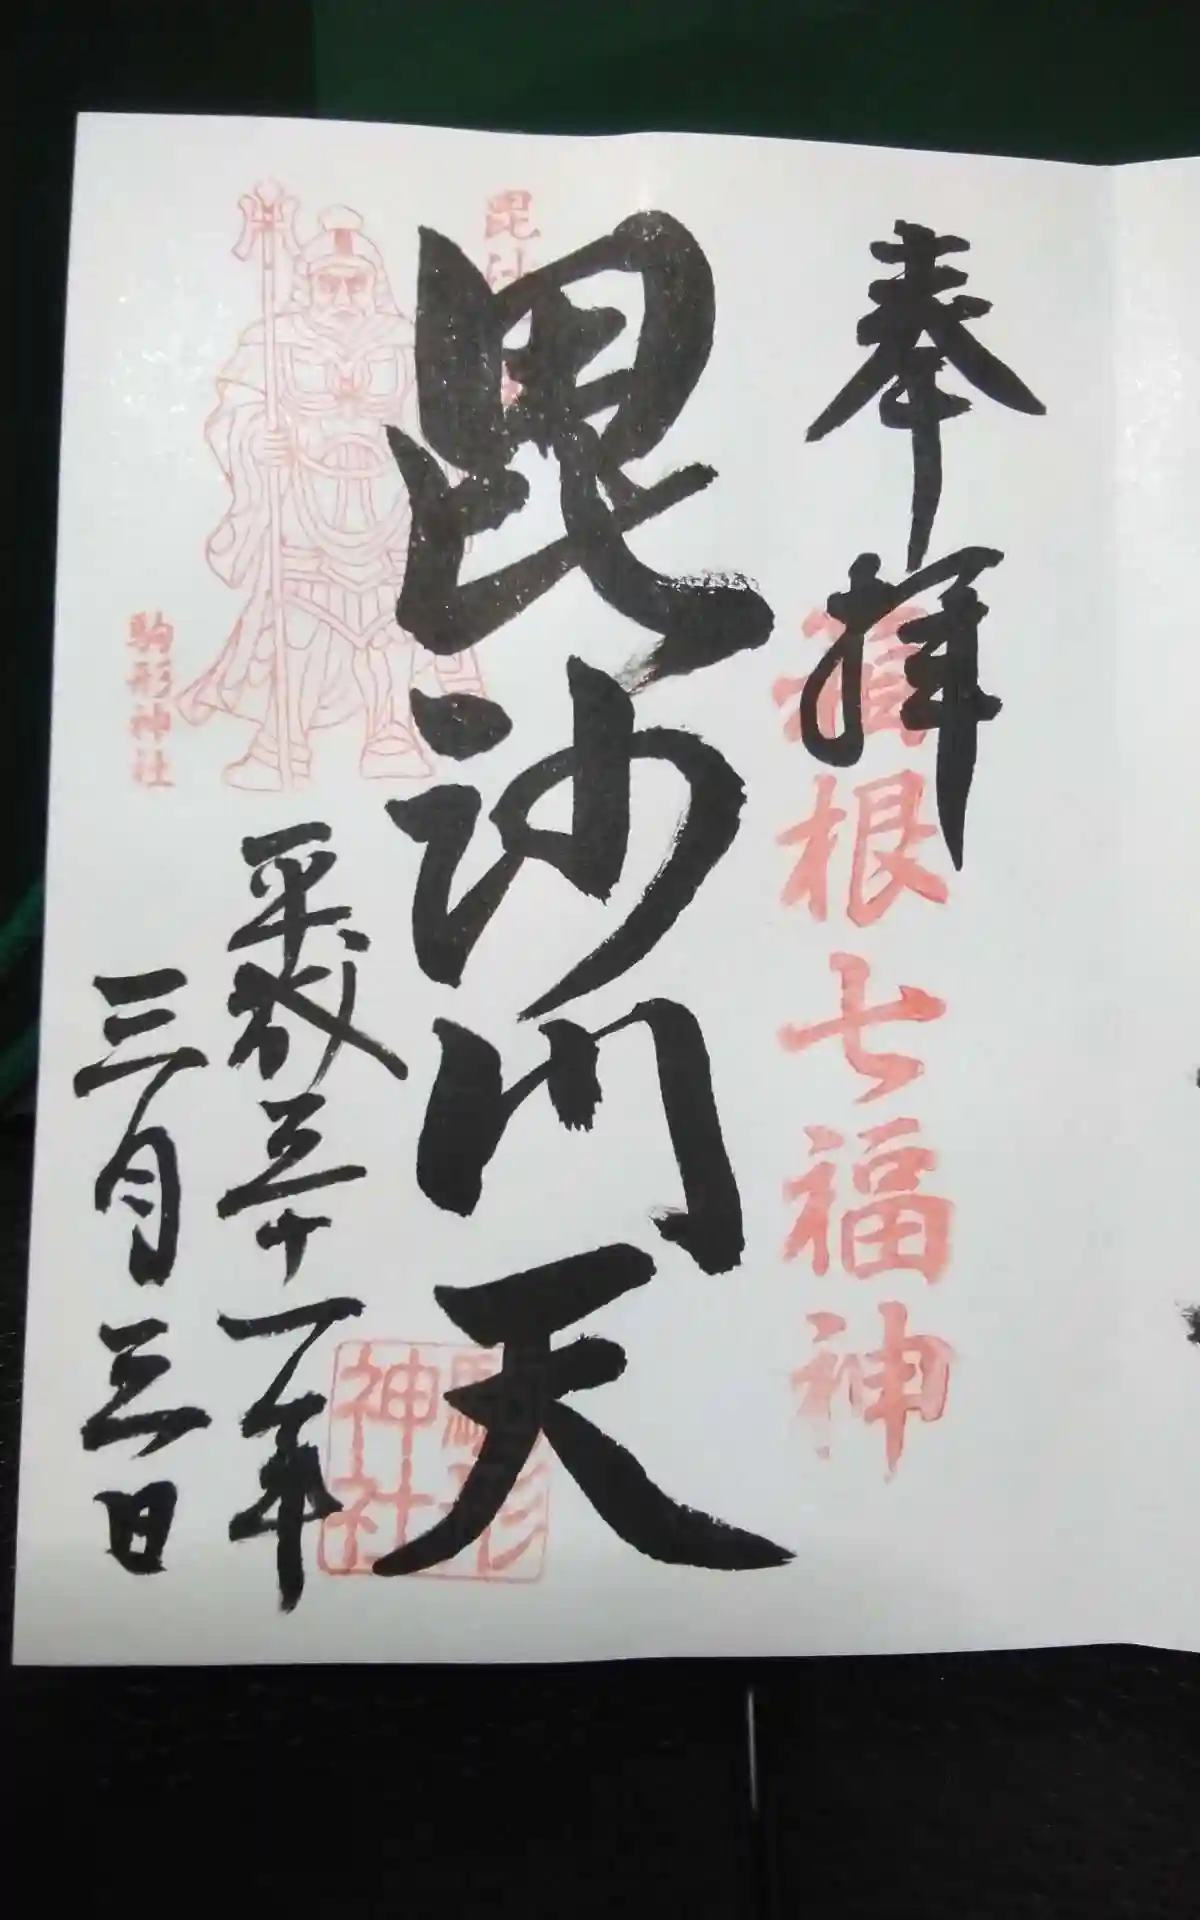 奉拝
箱根七福神
毘沙門天
平成三十一年
三月三日
駒形神社
駒形
神社